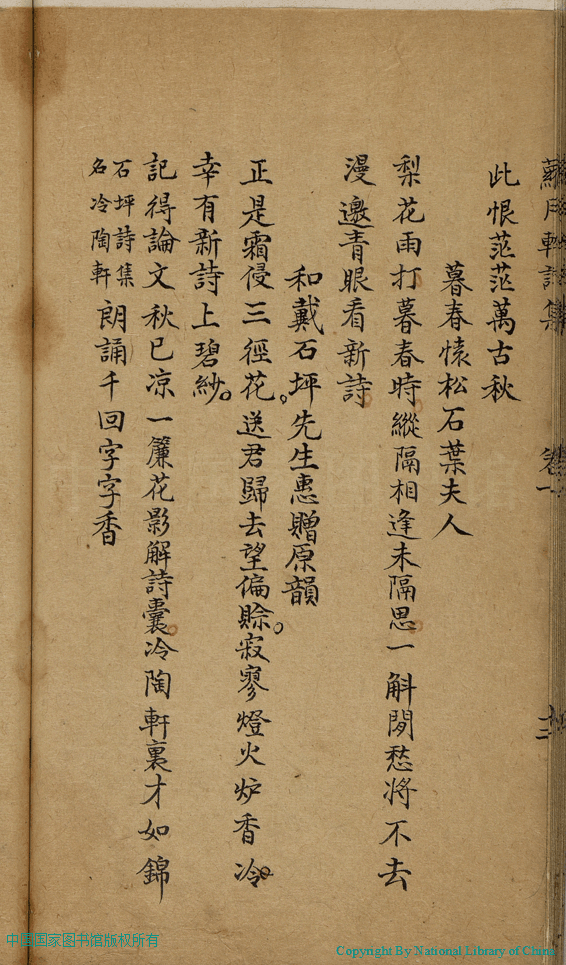 此恨茫茫萬古秋
暮春懷松石葉夫人
梨花雨打暮春時縱隔相逢未隔思一斛閒愁將不去
漫邀青眼看新詩
和戴石坪先生惠贈原韻
正是霜侵三徑花送君歸去望偏賒寂寥燈火炉香冷
幸有新詩上碧紗
記得論文秋已凉一簾花影解詩囊冷陶軒裏才如錦
石坪詩集
名冷陶軒
朗誦千回字字香
中国国家图书馆版权所有
Copyright By National Library of China